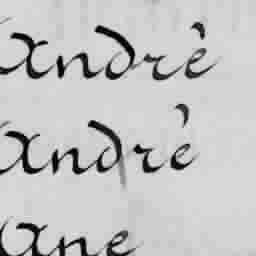 Andrè
Andrè
Ane